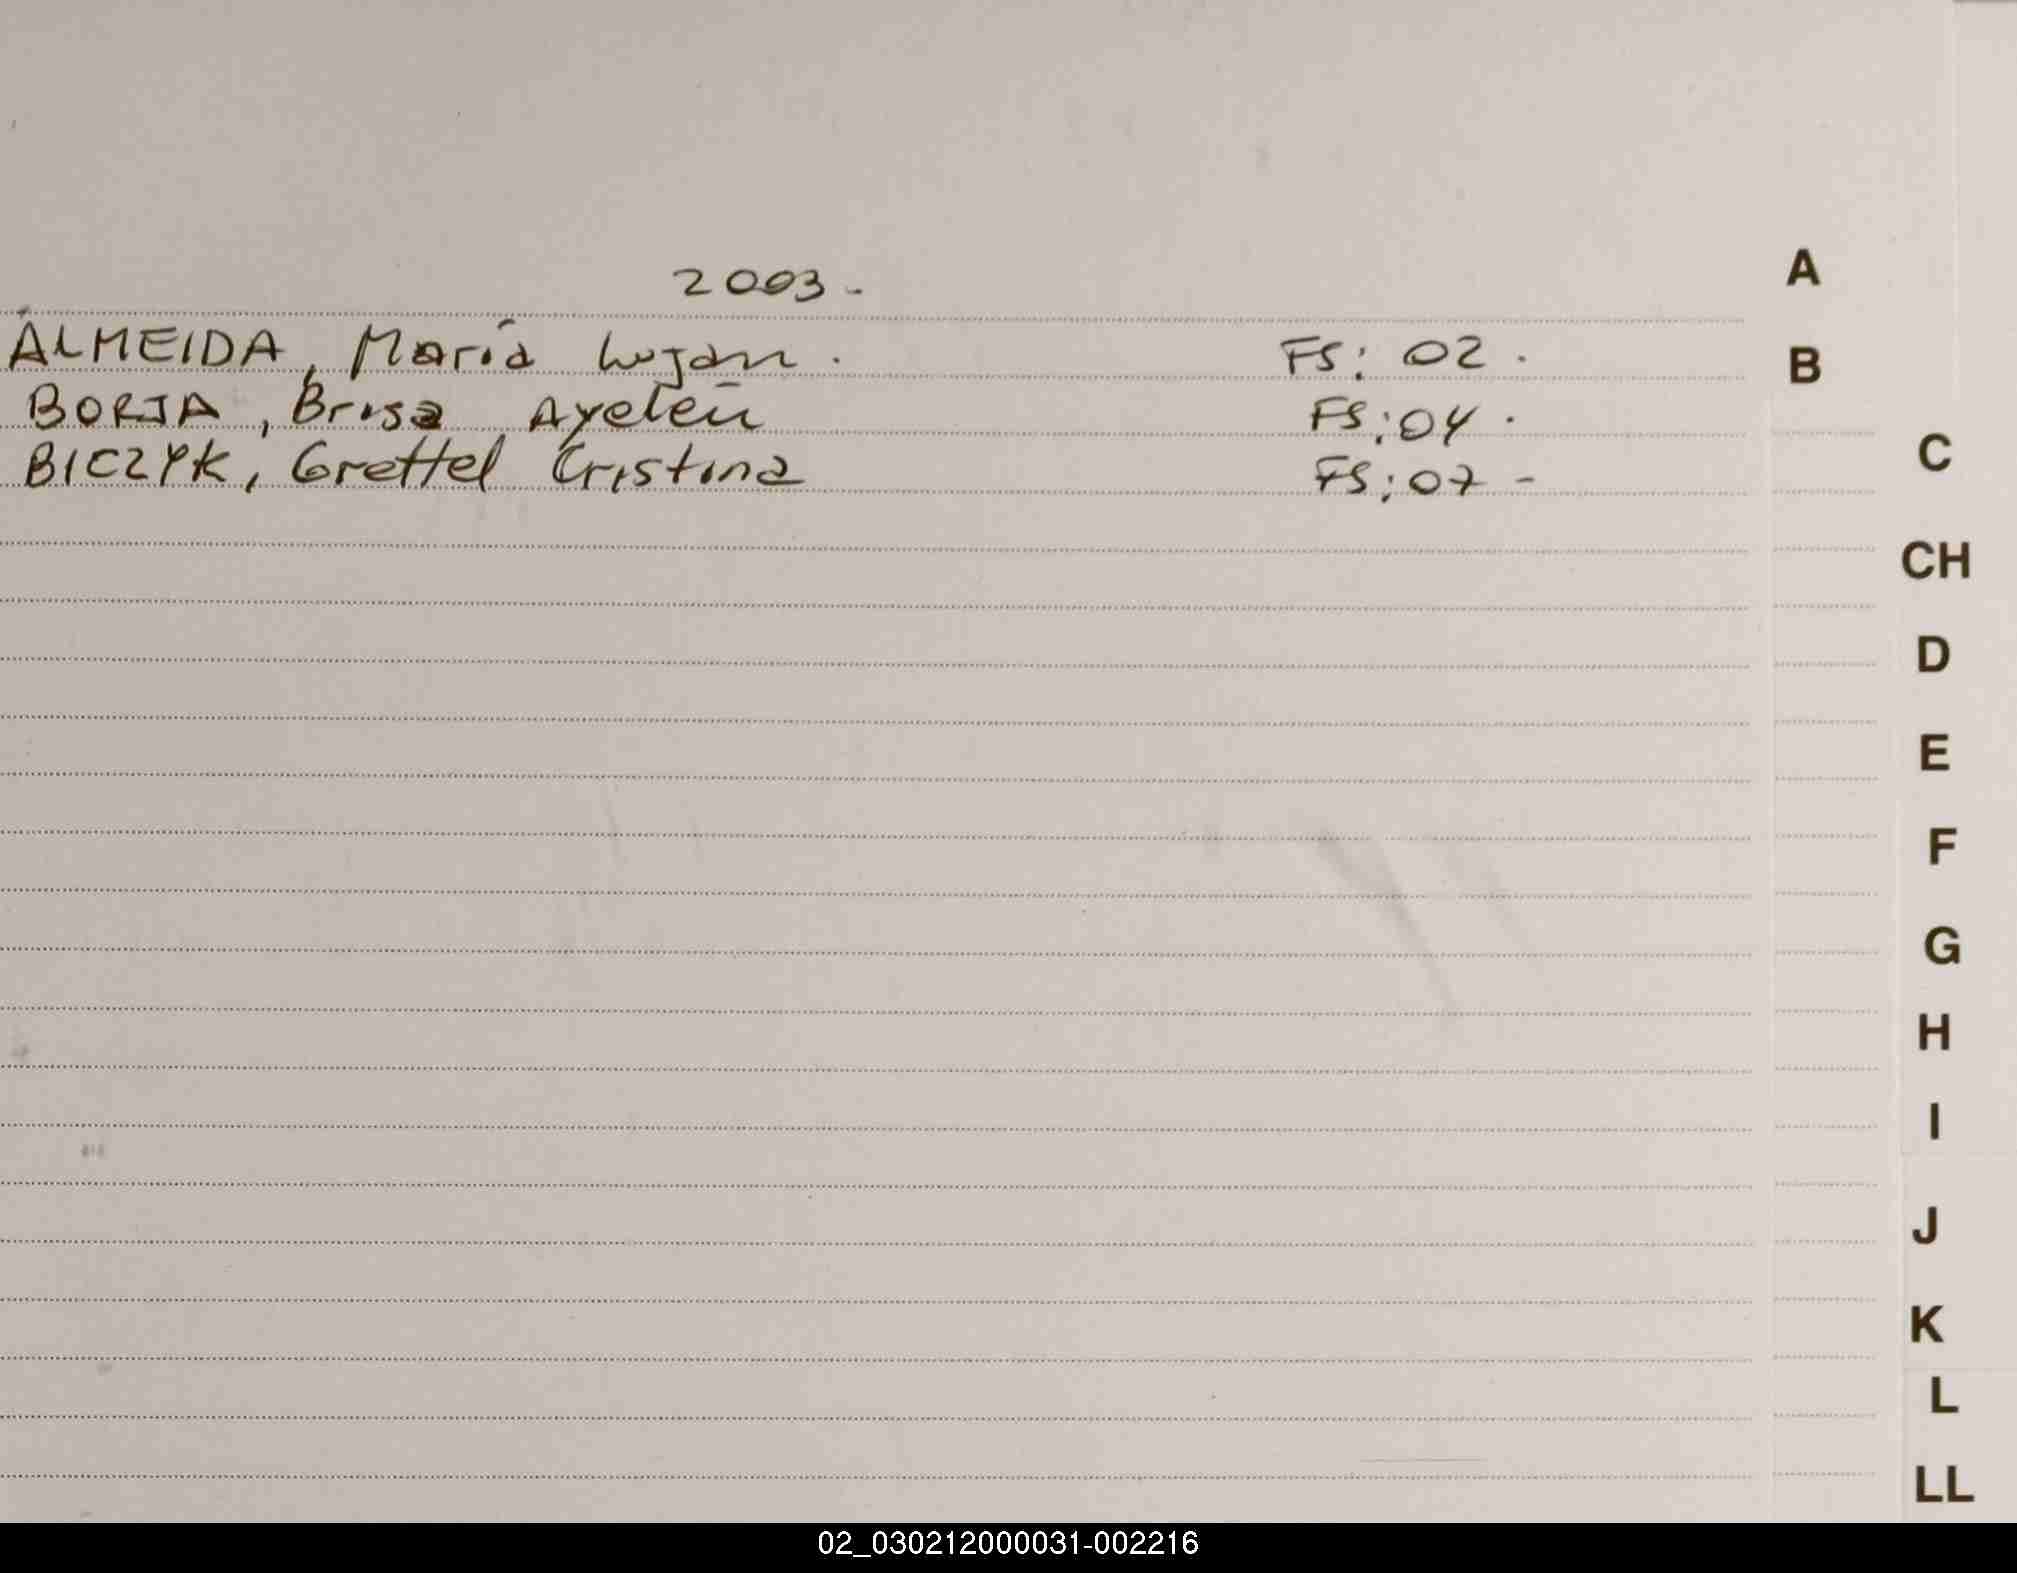 2003.-
ALMEIDA, María Luján. FS: 02.
BORJA, Brisa Ayelén FS: 04.
BICZYK, Grettel Cristina FS: 07-
A
B
C
CH
D
E
F
G
H
I
J
K
L
LL
02_030212000031-002216